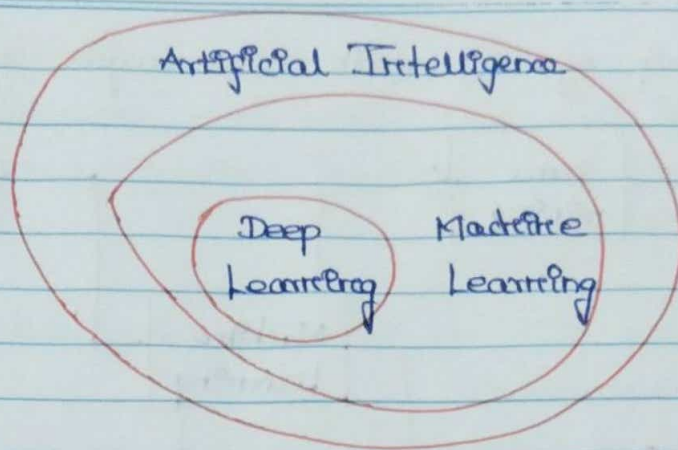 Artificial Intelligence
Deep
Learning
Machine
Learning